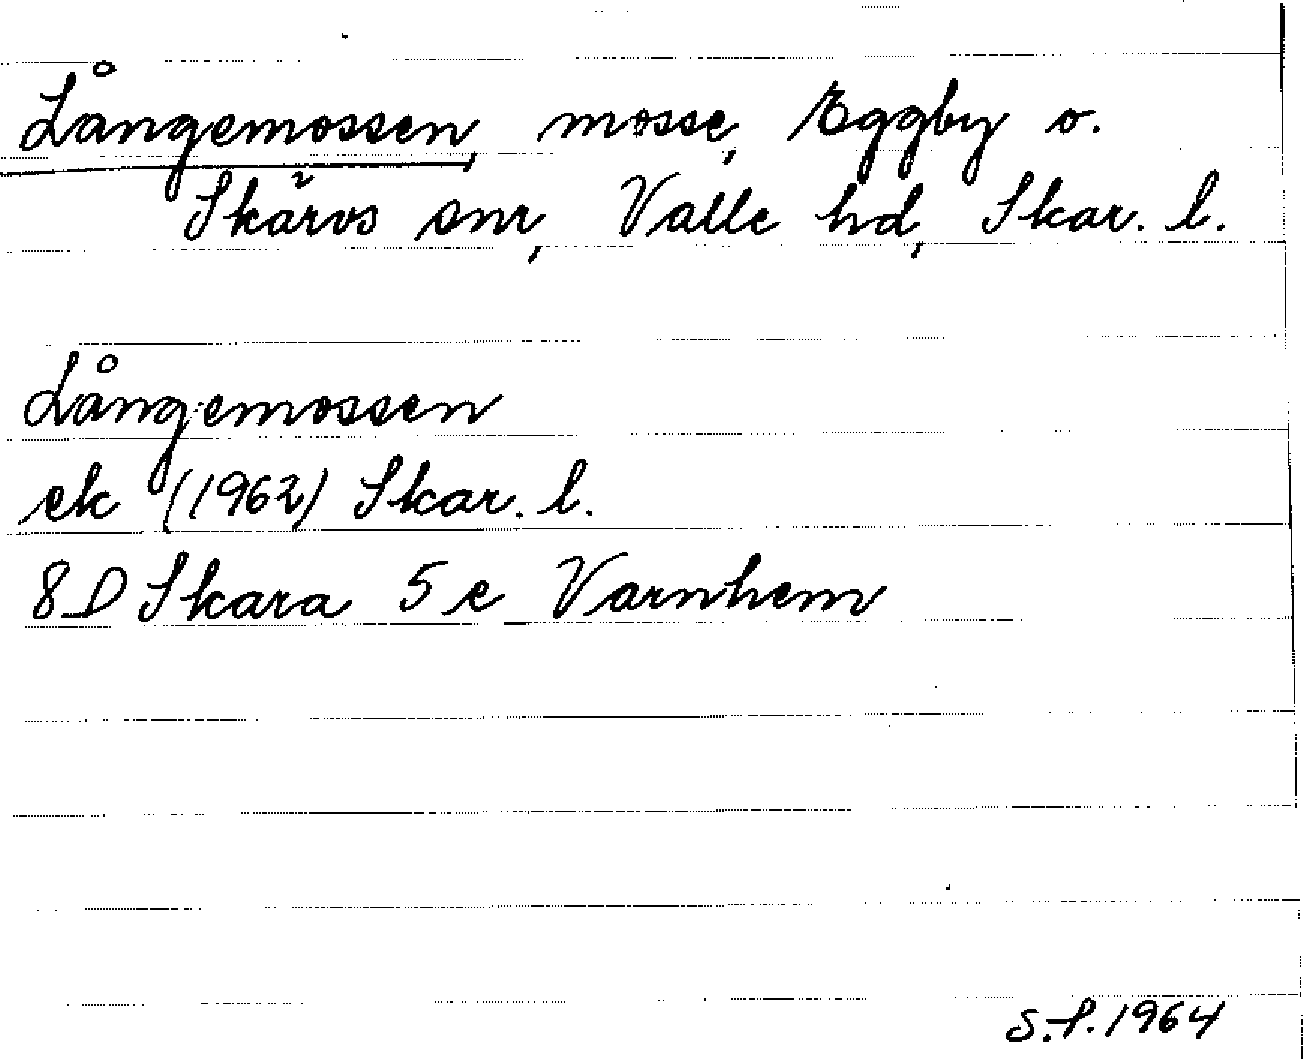 Långemossen, mosse, Eggby o.
Skärvs snr, Valle hd, Skar. l.
Långemossen
ek (1962) Skar. l.
8D Skara 5e Varnhem
S.f. 1964